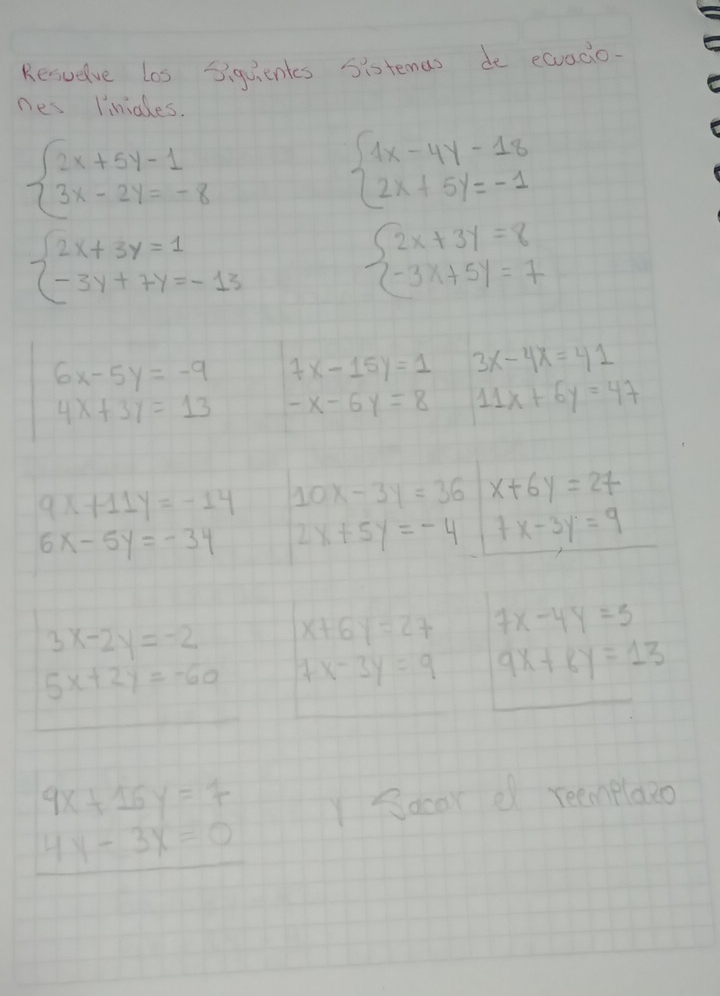 Resuelve Los Siguientes Sistemas de ecuacio-
nes liniales.
2x + 5y - 1
3x - 2y = - 8
1x - 4y - 18
2x + 5y = - 1
2x + 3y = 1
- 3y + 7y = - 13
2x + 3y = 8
- 3x + 5y = 7
6x - 5y = -9
4x + 3y = 13
7x - 15y = 1
-x - 6y = 8
3x - 4x = 41
11x + 6y = 47
9x + 11y = - 14
6x - 5y = - 34
10x - 3y = 36
2x + 5y = - 4
x + 6y = 27
7x - 3y = 9
3x - 2y = - 2
5x + 2y = - 60
x + 6y = 27
7x - 3y = 9
7x - 4y = 5
9x + 8y = 13
9x + 16y = 7
4y - 3x = 0
y Sacar el reemplazo